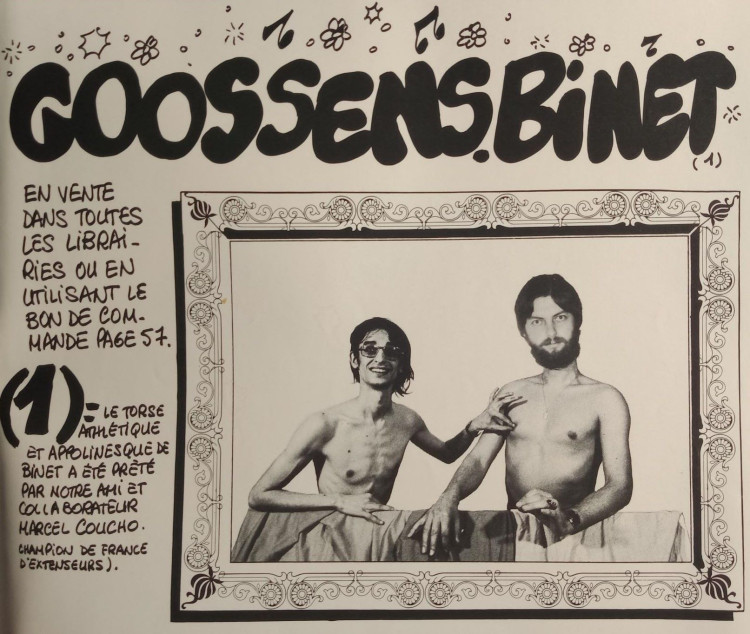 GOOSSENS.BINET
(1)
EN VENTE
DANS TOUTES
LES LIBRAI-
RIES OU EN
UTILISANT LE
BON DE COM-
MANDE PAGE 57.
(1)= LE TORSE
ATHLÉTIQUE
ET APPOLINESQUE DE
BINET A ÉTÉ PRÊTÉ
PAR NOTRE AMI ET
COLLABORATEUR
MARCEL COUCHO.
CHAMPION DE FRANCE
D'EXTENSEURS).